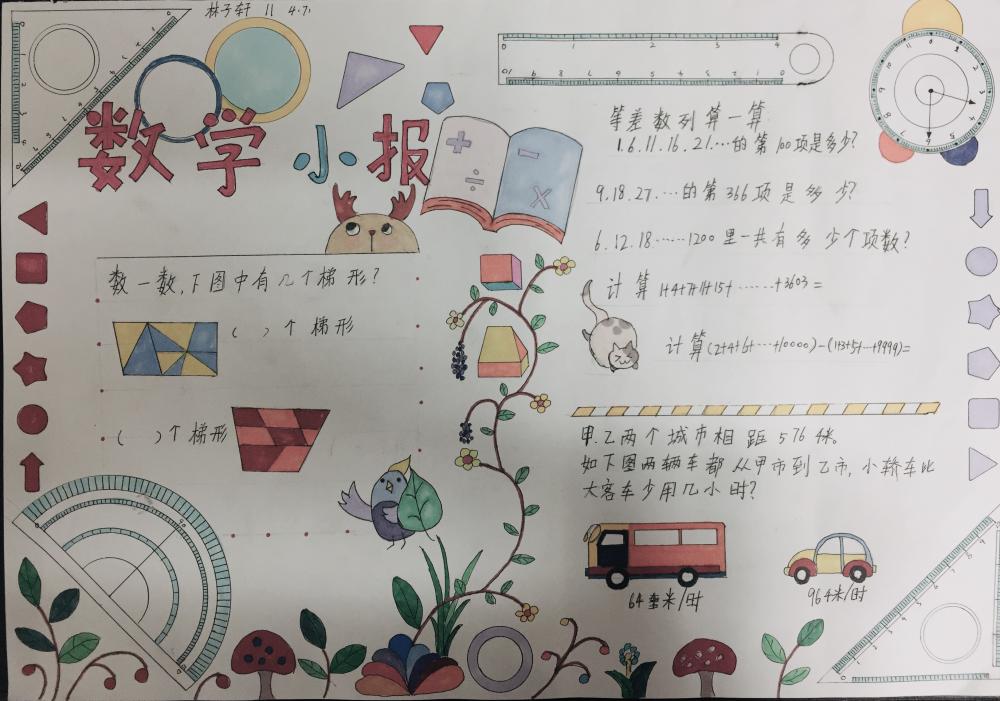 林子轩 11 4.71
数学小报
数一数,下图中有几个梯形?
( )个梯形
( )个梯形
等差数列算一算
1.6.11.16.21.…的第100项是多少?
9.18.27.…的第366项是多少?
6.12.18……1200里一共有多少个项数?
计算1+4+7+11+15+……+3603=
计算(2+4+6+…+10000)-(1+3+5+…+9999)=
甲.乙两个城市相距576千米。
如下图两辆车都从甲市到乙市,小轿车比
大客车少用几小时?
64千米/时
96千米/时